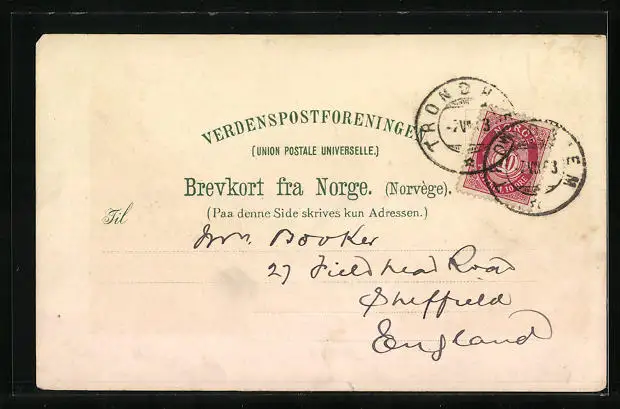 VERDENSPOSTFORENINGEN
(UNION POSTALE UNIVERSELLE.)
Brevkort fra Norge. (Norvège).
(Paa denne Side skrives kun Adressen.)
Til
Mrs. Booker
27 Fieldhead Road
Sheffield
England
TRONDHJEM
TRONDHJEM
NORGE
10